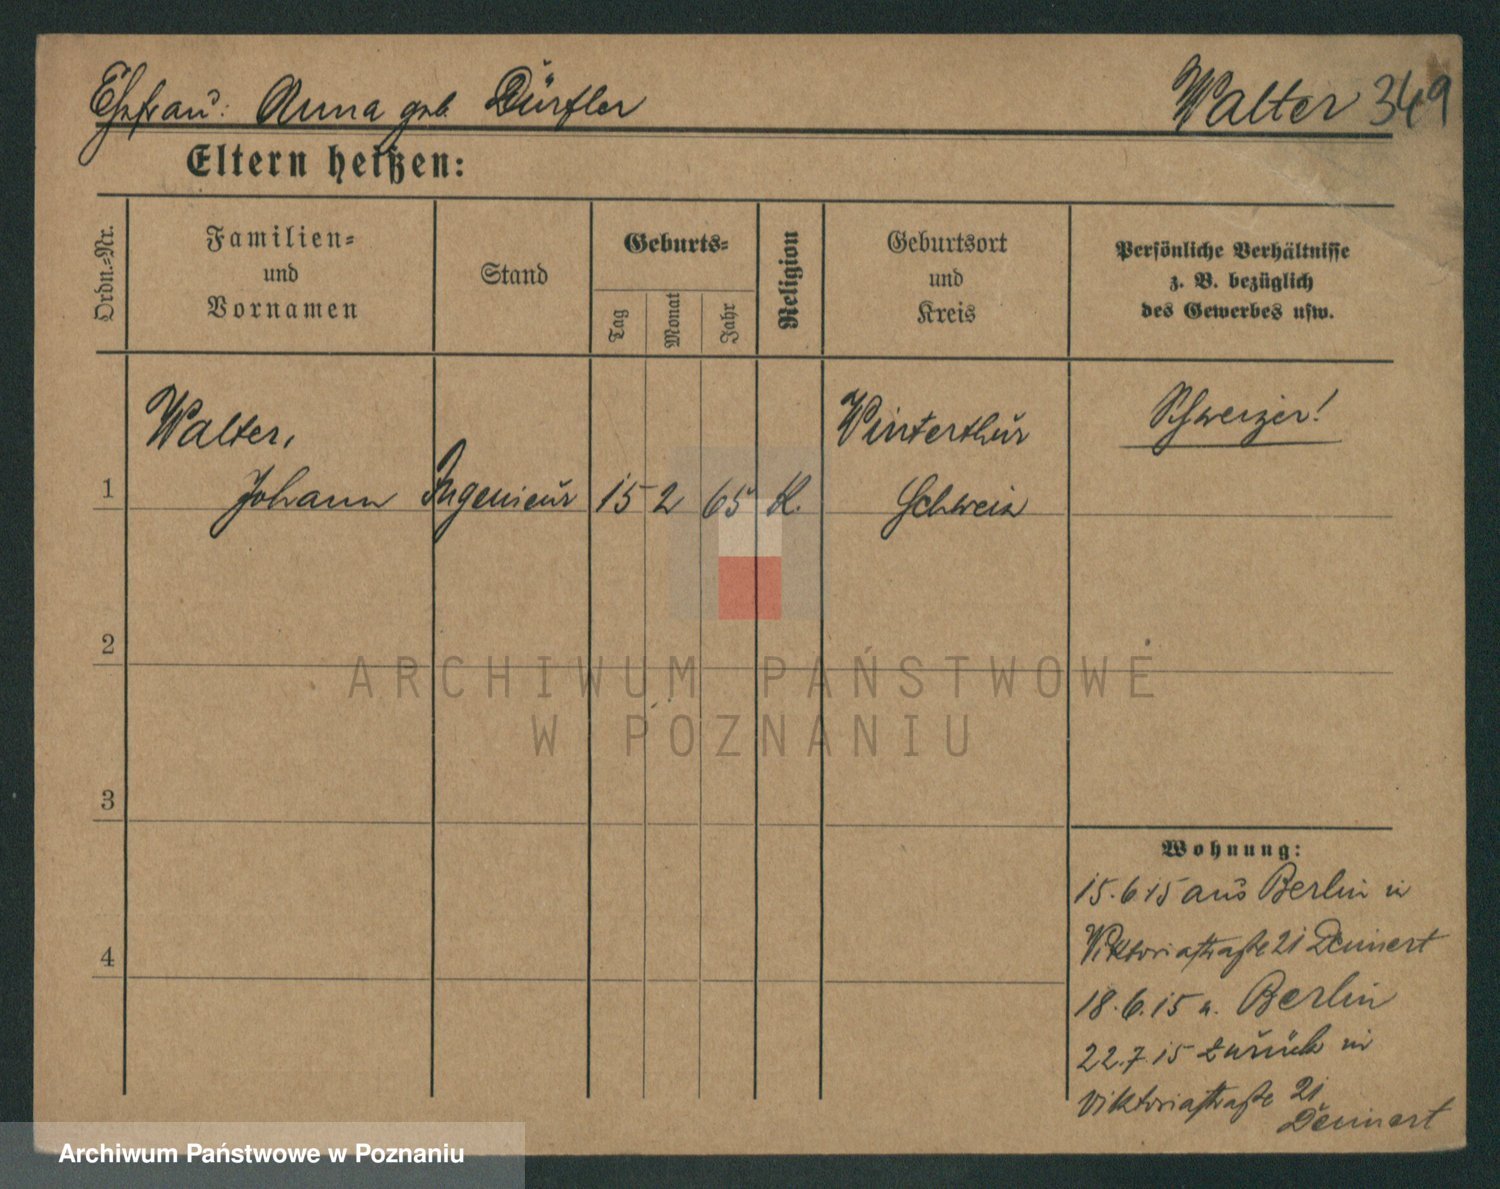 Ehefrau: Anna geb. Dürfler
Walter 349
Eltern heißen:
Ordn.=Nr.
Familien=
und
Vornamen
Stand
Geburts=
Tag
Monat
Jahr
Religion
Geburtsort
und
Kreis
Persönliche Verhältnisse
z. B. bezüglich
des Gewerbes usw.
Walter,
Winterthur
Schweizer!
1
Johann Ingenieur 15 2 65 K. Schweiz
2
ARCHIWUM PAŃSTWOWE
W POZNANIU
3
Wohnung:
15.6.15 aus Berlin in
Viktoriastraße 21 Dennert
4
18.6.15 n. Berlin
22.7.15 zurück in
Viktoriastraße 21
Dennert
Archiwum Państwowe w Poznaniu